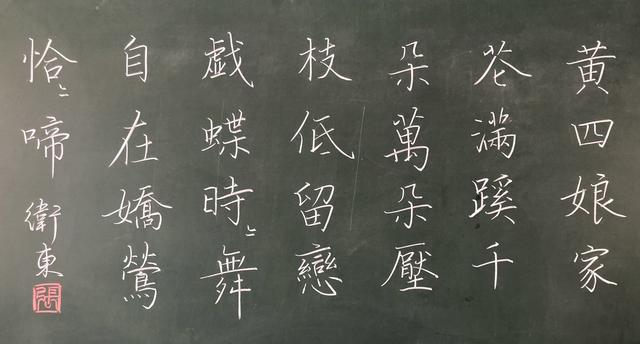 黃四娘家
花滿蹊千
朵萬朵壓
枝低留戀
戯蝶時〻舞
自在嬌鶯
恰〻啼 衛東
張